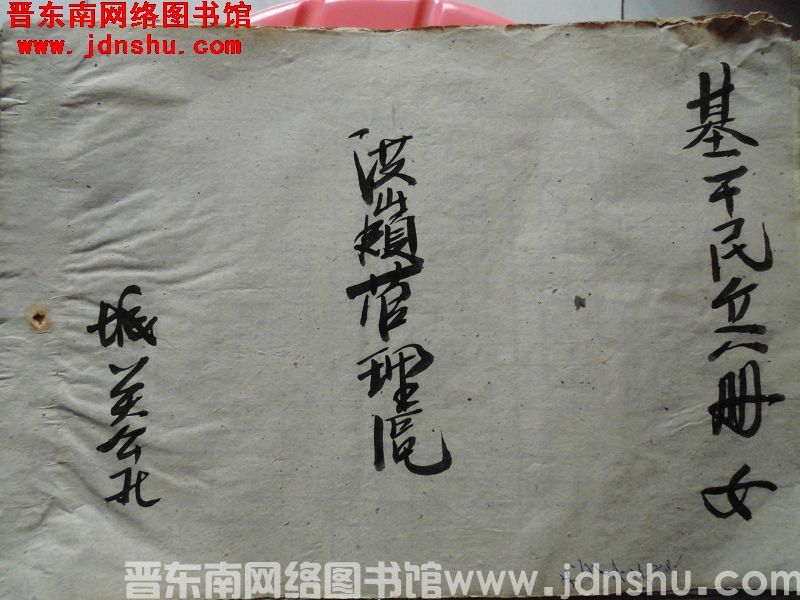 晋东南网络图书馆
www.jdnshu.com
基干民兵册 女
洪岭管理区
城关公社
晋东南网络图书馆www.jdnshu.com